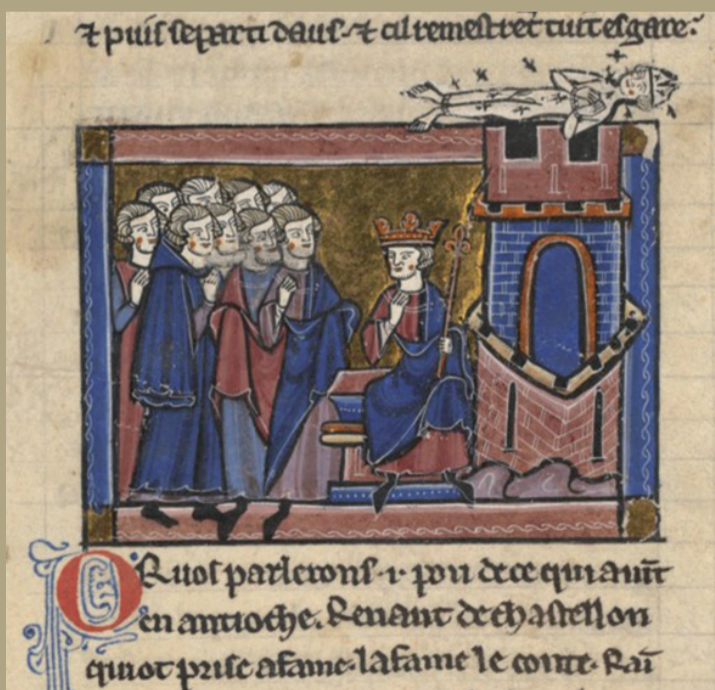 ⁊ puis se parti daus. ⁊ cil remestrēt tuit esgare.
ORuos parlerons .i. pou de ce qui auīt
en antioche. Renaut de chastellon
qui ot prise a fame. la fame le conte. Raī